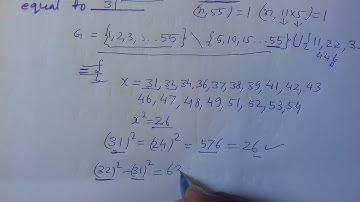 equal to 31
(n,55)=1 (n, 11x5)=1
G = {1,2,3,5...55} \ {5,10,15...55} U {11,22,3
44}
X = 31, 32, 34, 36, 37, 38, 39, 41, 42, 43
46, 47, 48, 49, 51, 52, 53, 54
x² = 26
(31)² = (24)² = 576 = 26 ✓
(32)² - (31)² = 63